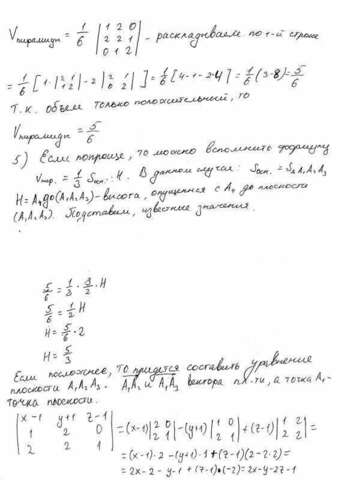 Vпирамиды = 1/6 |1 2 0; 2 2 1; 0 1 2| - раскладываем по 1-й строке
= 1/6 [1·|2 1; 1 2| - 2|2 1; 0 2|] = 1/6[4-1-2·4] = 1/6(3-8) = 5/6
Т.к. объем только положительный, то
Vпирамиды = 5/6
5) Если попроще, то можно вспомнить формулу
Vпир. = 1/3 Sосн. · H. В данном случае: Sосн. = S△A₁A₂A₃
H = A₄ до (A₁A₂A₃) - высота, опущенная с A₄ до плоскости
(A₁A₂A₃). Подставим, известные значения.
5/6 = 1/3 · 3/2 · H
5/6 = 1/2 H
H = 5/6 · 2
H = 5/3
Если посложнее, то придется составить уравнение
плоскости A₁A₂A₃. A₁A₂ и A₁A₃ вектора пл-ти, а точка A₁-
точка плоскости.
|x-1 y+1 z-1; 1 2 0; 2 2 1| = (x-1)|2 0; 2 1| - (y+1)|1 0; 2 1| + (z-1)|1 2; 2 2| =
= (x-1)·2 - (y+1)·1 + (z-1)(2-2·2) =
= 2x-2-y-1+(z-1)·(-2) = 2x-y-2z-1